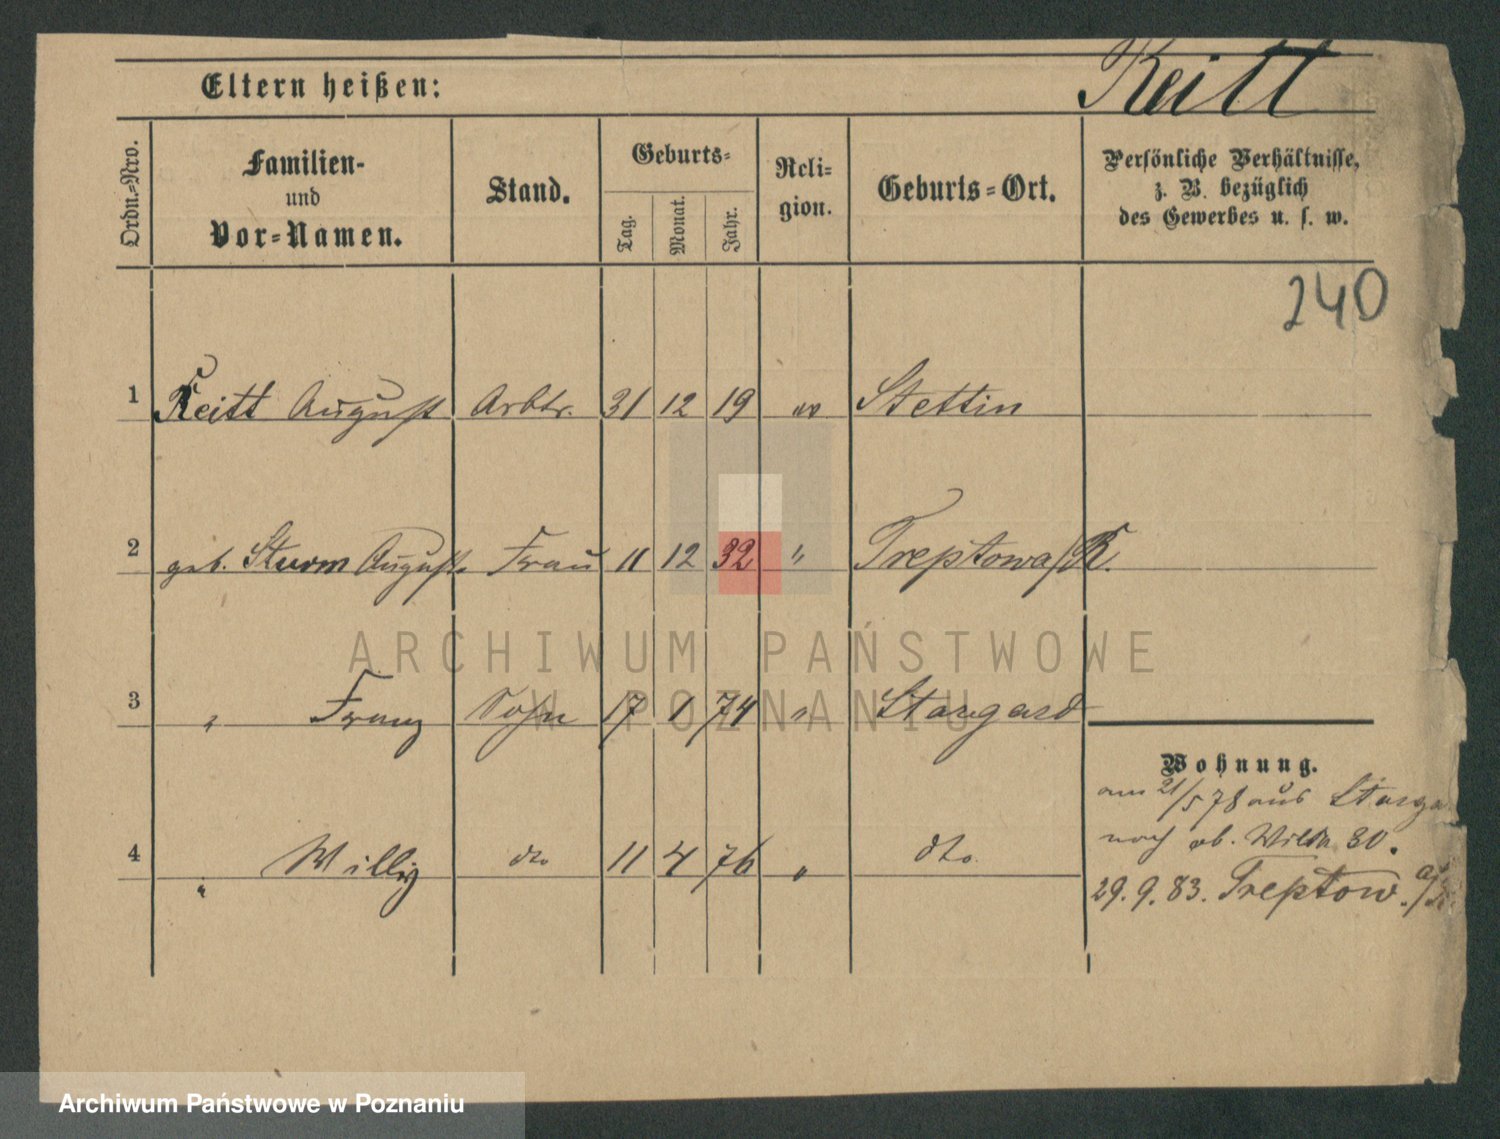 Eltern heißen:
Reitt
Ordn.-Nro.
Familien-
und
Vor-Namen.
Stand.
Geburts-
Tag.
Monat.
Jahr.
Reli-
gion.
Geburts-Ort.
Persönliche Verhältnisse,
z. B. bezüglich
des Gewerbes u. s. w.
240
1 Reitt August Arbtr. 31 12 19 ev Stettin
2 geb. Sturm August. Frau 11 12 32 " Treptow a/R.
3 " Franz Sohn 17 1 74 " Stargard
4 " Willy dto 11 4 76 " dto.
Wohnung.
am 21/5 78 aus Starga
nach ob. Wilda 30.
29.9.83. Treptow. a/R.
ARCHIWUM PAŃSTWOWE
W POZNANIU
Archiwum Państwowe w Poznaniu